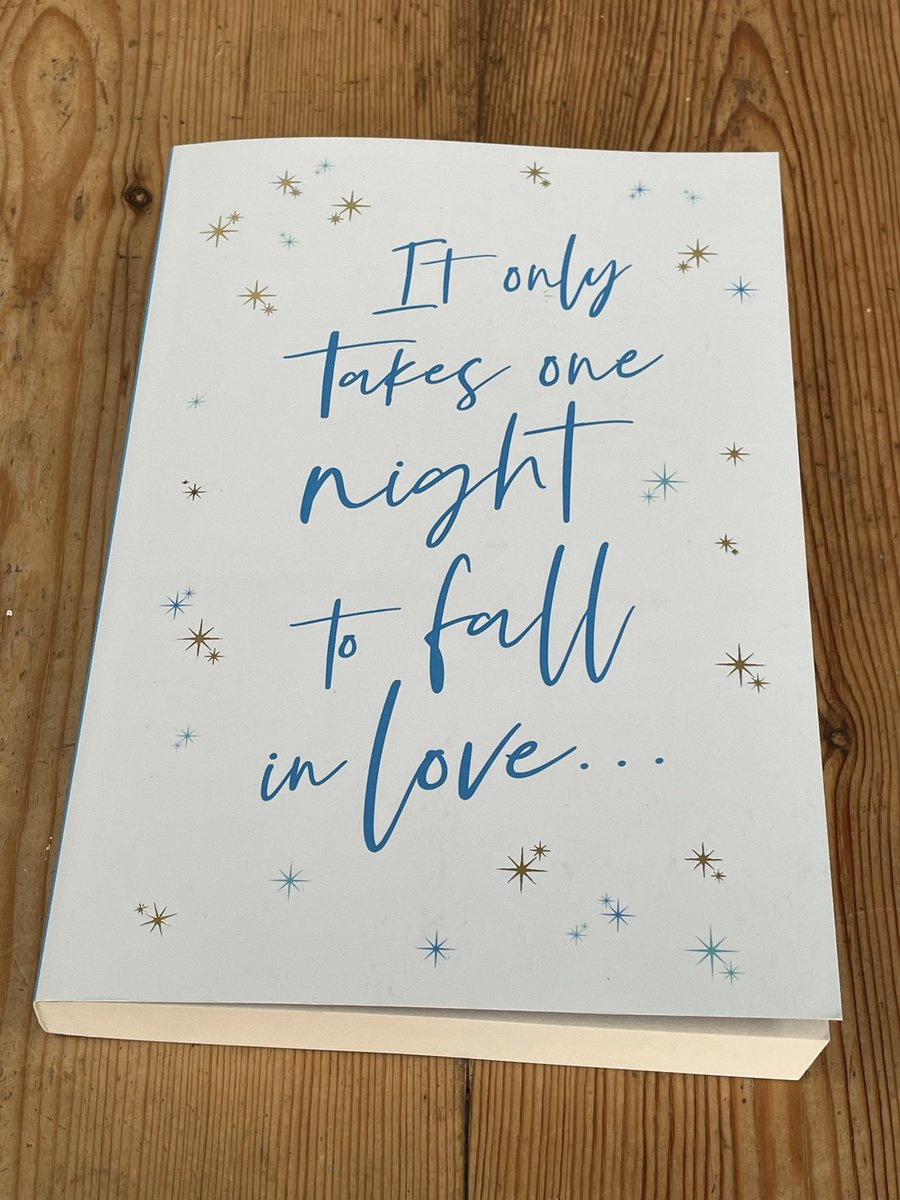 It only
takes one
night
to fall
in love...